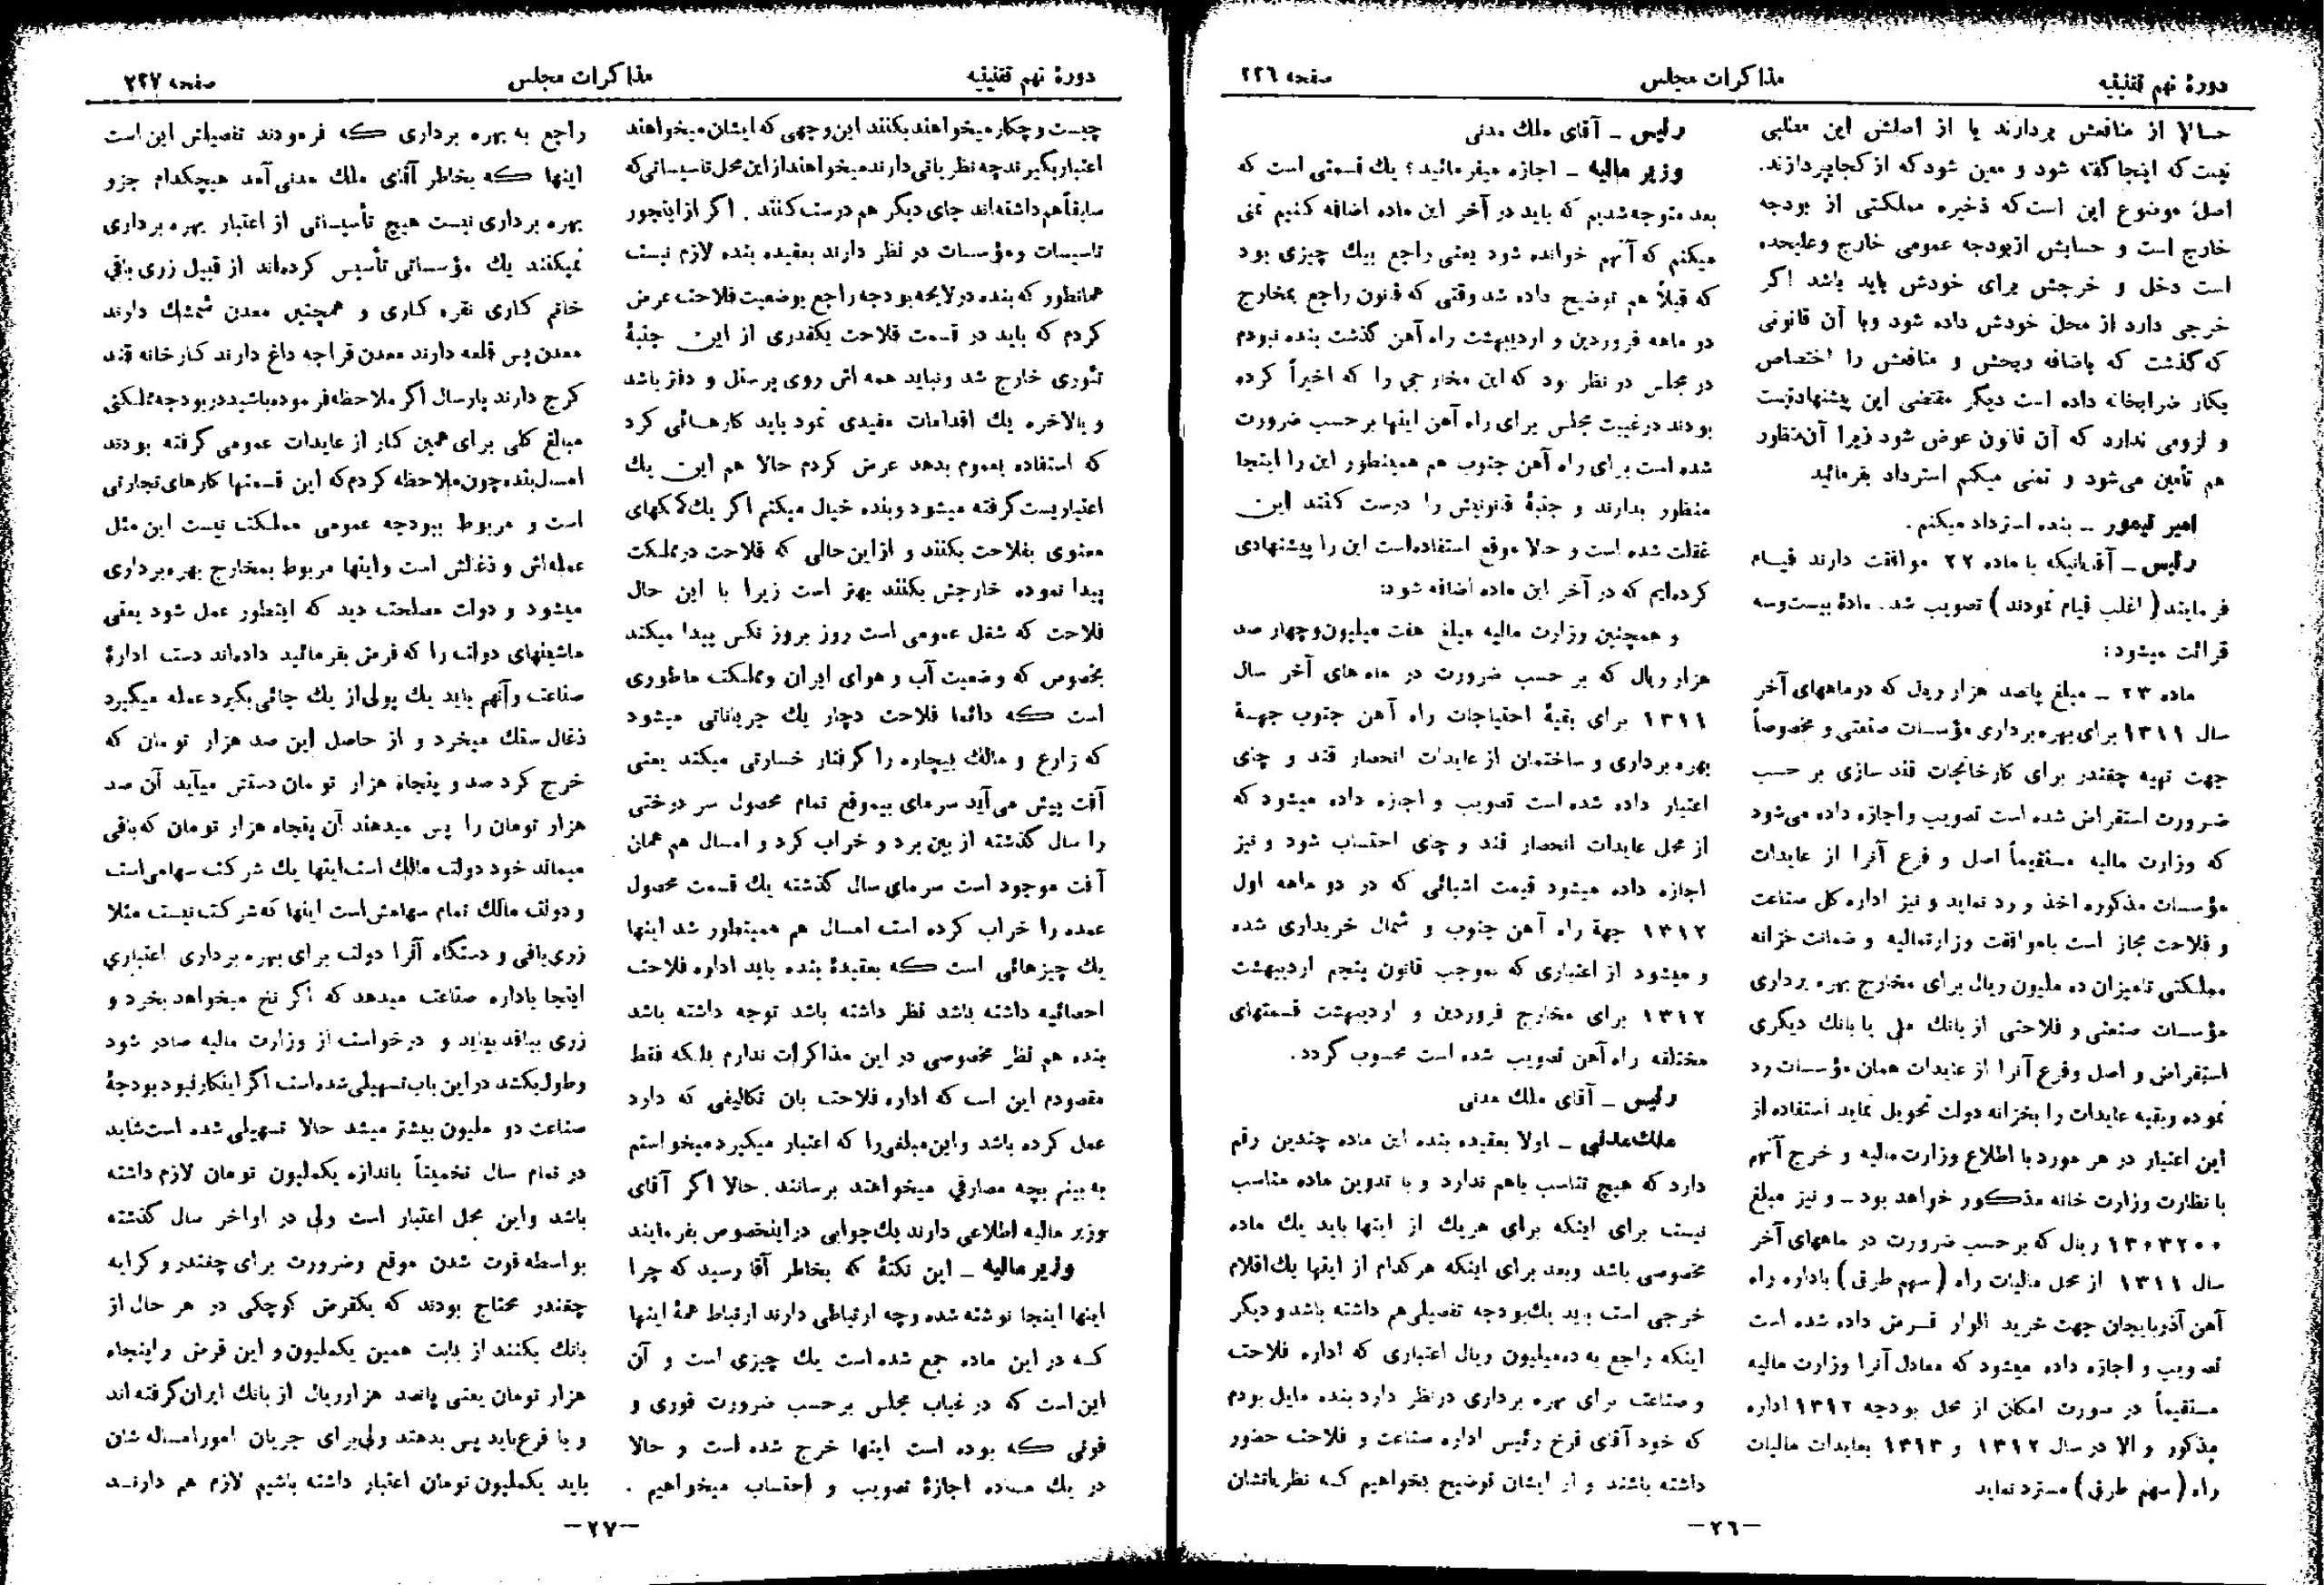 دورهٔ نهم تقنینیه
مذاکرات مجلس
صفحه ۲۲۶
حالا از منافعش بردارند یا از اصلش این مطلبی
نیست که اینجا گفته شود و معین شود که از کجا بپردازند.
اصل موضوع این است که ذخیره مملکتی از بودجه
خارج است و حسابش از بودجه عمومی خارج و علیحده
است دخل و خرجش برای خودش باید باشد اگر
خرجی دارد از محل خودش داده شود وبا آن قانونی
که گذشت که باضافه ربحش و منافعش را اختصاص
بکار ضرابخانه داده است دیگر مقتضی این پیشنهاد نیست
و لزومی ندارد که آن قانون عوض شود زیرا آن منظور
هم تأمین می‌شود و تمنی میکنم استرداد بفرمائید
امیر تیمور ـ بنده استرداد میکنم.
رئیس ـ آقایانیکه با ماده ۲۲ موافقت دارند قیام
فرمایند (اغلب قیام نمودند) تصویب شد. مادهٔ بیست‌وسه
قرائت میشود:
ماده ۲۳ ـ مبلغ پانصد هزار ریال که در ماههای آخر
سال ۱۳۱۱ برای بهره برداری مؤسسات صنعتی و مخصوصاً
جهت تهیه چغندر برای کارخانجات قند سازی بر حسب
ضرورت استقراض شده است تصویب و اجازه داده می‌شود
که وزارت مالیه مستقیماً اصل و فرع آنرا از عایدات
مؤسسات مذکوره اخذ و رد نماید و نیز اداره کل صناعت
و فلاحت مجاز است باموافقت وزارتمالیه و ضمانت خزانه
مملکتی تامیزان ده ملیون ریال برای مخارج بهره برداری
مؤسسات صنعتی و فلاحتی از بانک ملی یا بانک دیگری
استقراض و اصل وفرع آنرا از عایدات همان مؤسسات رد
نموده وبقیه عایدات را بخزانه دولت تحویل نماید استفاده از
این اعتبار در هر مورد با اطلاع وزارت مالیه و خرج آنهم
با نظارت وزارت خانه مذکور خواهد بود ـ و نیز مبلغ
۱۳۰۳۲۰۰ ریال که برحسب ضرورت در ماههای آخر
سال ۱۳۱۱ از محل مالیات راه (سهم طرق) باداره راه
آهن آذربایجان جهت خرید الوار قرض داده شده است
تصویب و اجازه داده میشود که معادل آنرا وزارت مالیه
مستقیماً در صورت امکان از محل بودجه ۱۳۱۲ اداره
مذکور و الا در سال ۱۳۱۲ و ۱۳۱۳ بعایدات مالیات
راه (سهم طرق) مسترد نماید
رئیس ـ آقای ملک مدنی
وزیر مالیه ـ اجازه میفرمائید؛ یک قسمتی است که
بعد متوجه شدیم که باید در آخر این ماده اضافه کنیم تمنی
میکنم که آنهم خوانده شود یعنی راجع بیک چیزی بود
که قبلاً هم توضیح داده شد وقتی که قانون راجع بمخارج
دو ماهه فروردین و اردیبهشت راه آهن گذشت بنده نبودم
در مجلس در نظر بود که این مخارجی را که اخیراً کرده
بودند در غیبت مجلس برای راه آهن اینها بر حسب ضرورت
شده است برای راه آهن جنوب هم همینطور این را اینجا
منظور بدارند و جنبهٔ قانونیش را درست کنند این
غفلت شده است و حالا موقع استفاده است این را پیشنهادی
کرده‌ایم که در آخر این ماده اضافه شود:
و همچنین وزارت مالیه مبلغ هفت میلیون‌وچهار صد
هزار ریال که بر حسب ضرورت در ماه های آخر سال
۱۳۱۱ برای بقیهٔ احتیاجات راه آهن جنوب جهة
بهره برداری و ساختمان از عایدات انحصار قند و چای
اعتبار داده شده است تصویب و اجازه داده میشود که
از محل عایدات انحصار قند و چای احتساب شود و نیز
اجازه داده میشود قیمت اشیائی که در دو ماهه اول
۱۳۱۲ جهة راه آهن جنوب و شمال خریداری شده
و میشود از اعتباری که بموجب قانون پنجم اردیبهشت
۱۳۱۲ برای مخارج فروردین و اردیبهشت قسمتهای
مختلفه راه آهن تصویب شده است محسوب گردد.
رئیس ـ آقای ملک مدنی
ملک‌مدنی ـ اولا بعقیده بنده این ماده چندین رقم
دارد که هیچ تناسب باهم ندارد و با تدوین ماده مناسب
نیست برای اینکه برای هریک از اینها باید یک ماده
مخصوصی باشد وبعد برای اینکه هرکدام از اینها یک‌اقلام
خرجی است باید یک‌بودجه تفصیلی‌هم داشته باشد و دیگر
اینکه راجع به ده‌میلیون ریال اعتباری که اداره فلاحت
و صناعت برای بهره برداری درنظر دارد بنده مایل بودم
که خود آقای فرخ رئیس اداره صناعت و فلاحت حضور
داشته باشند و از ایشان توضیح بخواهیم که نظریاتشان
ـ۲۶ـ
دورهٔ نهم تقنینیه
مذاکرات مجلس
صفحه ۲۲۷
چیست و چکار میخواهند بکنند این وجهی که ایشان میخواهند
اعتبار بگیرند چه نظریاتی دارند میخواهند از این محل تاسیساتی که
سابقاً هم داشته‌اند جای دیگر هم درست کنند. اگر از اینجور
تاسیسات ومؤسسات در نظر دارند بعقیده بنده لازم نیست
همانطور که بنده در لایحه بودجه راجع بوضعیت فلاحت عرض
کردم که باید در قسمت فلاحت یکقدری از این جنبهٔ
تئوری خارج شد ونباید همه اش روی پرسنل و دفتر باشد
و بالاخره یک اقدامات مفیدی نمود باید کارهائی کرد
که استفاده بعموم بدهد عرض کردم حالا هم این یک
اعتباریست گرفته میشود وبنده خیال میکنم اگر یک کمکهای
معنوی بفلاحت بکنند و از این حالی که فلاحت در مملکت
پیدا نموده خارجش بکنند بهتر است زیرا با این حال
فلاحت که شغل عمومی است روز بروز نکس پیدا میکند
بخصوص که وضعیت آب و هوای ایران ومملکت ماطوری
است که دائما فلاحت دچار یک جریاناتی میشود
که زارع و مالک بیچاره را گرفتار خسارتی میکند یعنی
آفت پیش می‌آید سرمای بیموقع تمام محصول سر درختی
را سال گذشته از بین برد و خراب کرد و امسال هم همان
آفت موجود است سرمای سال گذشته یک قسمت محصول
عمده را خراب کرده است امسال هم همینطور شد اینها
یک چیزهائی است که بعقیدهٔ بنده باید اداره فلاحت
احصائیه داشته باشد نظر داشته باشد توجه داشته باشد
بنده هم نظر مخصوصی در این مذاکرات ندارم بلکه فقط
مقصودم این است که اداره فلاحت بان تکالیفی که دارد
عمل کرده باشد واین مبلغی را که اعتبار میگیرد میخواستم
به بینم بچه مصارفی میخواهند برسانند. حالا اگر آقای
وزیر مالیه اطلاعی دارند یک‌جوابی دراینخصوص بفرمایند
وزیر مالیه ـ این نکتهٔ که بخاطر آقا رسید که چرا
اینها اینجا نوشته شده وچه ارتباطی دارند ارتباط همهٔ اینها
که در این ماده جمع شده است یک چیزی است و آن
این است که در غیاب مجلس برحسب ضرورت فوری و
فوتی که بوده است اینها خرج شده است و حالا
در یک ماده اجازهٔ تصویب و احتساب میخواهیم.
راجع به بهره برداری که فرمودند تفصیلش این است
اینها که بخاطر آقای ملک مدنی آمد هیچکدام جزو
بهره برداری نیست هیچ تأسیساتی از اعتبار بهره برداری
نمیکنند یک مؤسساتی تأسیس کرده‌اند از قبیل زری بافی
خاتم کاری نقره کاری و همچنین معدن شمشک دارند
معدن پس قلعه دارند معدن قراجه داغ دارند کارخانه قند
کرج دارند پارسال اگر ملاحظه فرموده باشید در بودجه مملکتی
مبالغ کلی برای همین کار از عایدات عمومی گرفته بودند
امسال بنده چون ملاحظه کردم که این قسمتها کارهای تجارتی
است و مربوط ببودجه عمومی مملکت نیست این مثل
عمله‌اش و ذغالش است واینها مربوط بمخارج بهره برداری
میشود و دولت مصلحت دید که اینطور عمل شود یعنی
ماشینهای دولت را که فرض بفرمائید داده‌اند دست ادارهٔ
صناعت وآنهم باید یک پولی از یک جائی بگیرد عمله میگیرد
ذغال سنگ میخرد و از حاصل این صد هزار تومان که
خرج کرد صد و پنجاه هزار تومان دستش میآید آن صد
هزار تومان را پس میدهند آن پنجاه هزار تومان که باقی
میماند خود دولت مالک است اینها یک شرکت سهامی است
و دولت مالک تمام سهامش است اینها که شرکت نیست مثلا
زری بافی و دستگاه آنرا دولت برای بهره برداری اعتباری
اینجا باداره صناعت میدهد که اگر نخ میخواهد بخرد و
زری ببافد بیاید و درخواست از وزارت مالیه صادر شود
وطول بکشد در این باب تسهیلی شده است اگر اینکار نبود بودجهٔ
صناعت دو ملیون بیشتر میشد حالا تسهیلی شده است شاید
در تمام سال تخمیناً باندازه یکملیون تومان لازم داشته
باشد واین محل اعتبار است ولی در اواخر سال گذشته
بواسطه فوت شدن موقع وضرورت برای چغندر و کرایه
چغندر محتاج بودند که یکقرض کوچکی در هر حال از
بانک بکنند از بابت همین یکملیون و این قرض را پنجاه
هزار تومان یعنی پانصد هزار ریال از بانک ایران گرفته اند
و با فرع باید پس بدهند ولی برای جریان امور امساله شان
باید یکملیون تومان اعتبار داشته باشیم لازم هم دارند
ـ۲۷ـ